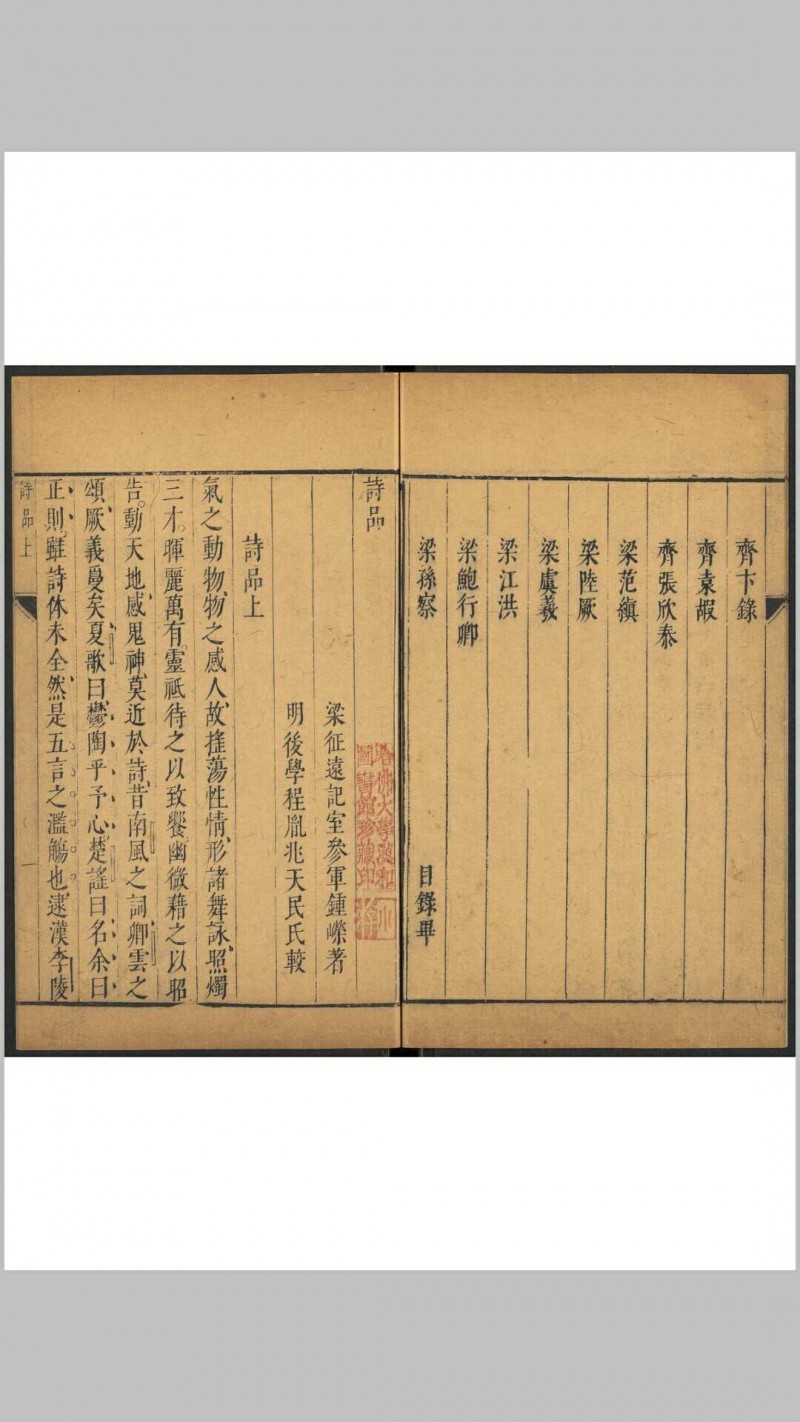 齊卞錄
齊袁嘏
齊張欣泰
梁范縝
梁陸厥
梁虞羲
梁江洪
梁鮑行卿
梁孫察
目錄畢
詩品
梁征遠記室參軍鍾嶸著
明後學程胤兆天民氏較
詩品上
氣之動物、物之感人、故搖蕩性情、形諸舞詠、照燭
三才。暉麗萬有。靈祇待之以致饗、幽微藉之以昭
告。動天地、感鬼神、莫近於詩、昔南風之詞、卿雲之
頌、厥義敻矣、夏歌曰、鬱陶乎予心、楚謠曰名余曰
正則。雖詩体未全、然是五言之濫觴也、逮漢李陵
詩品上
一
哈佛大學漢和
圖書館珍藏印